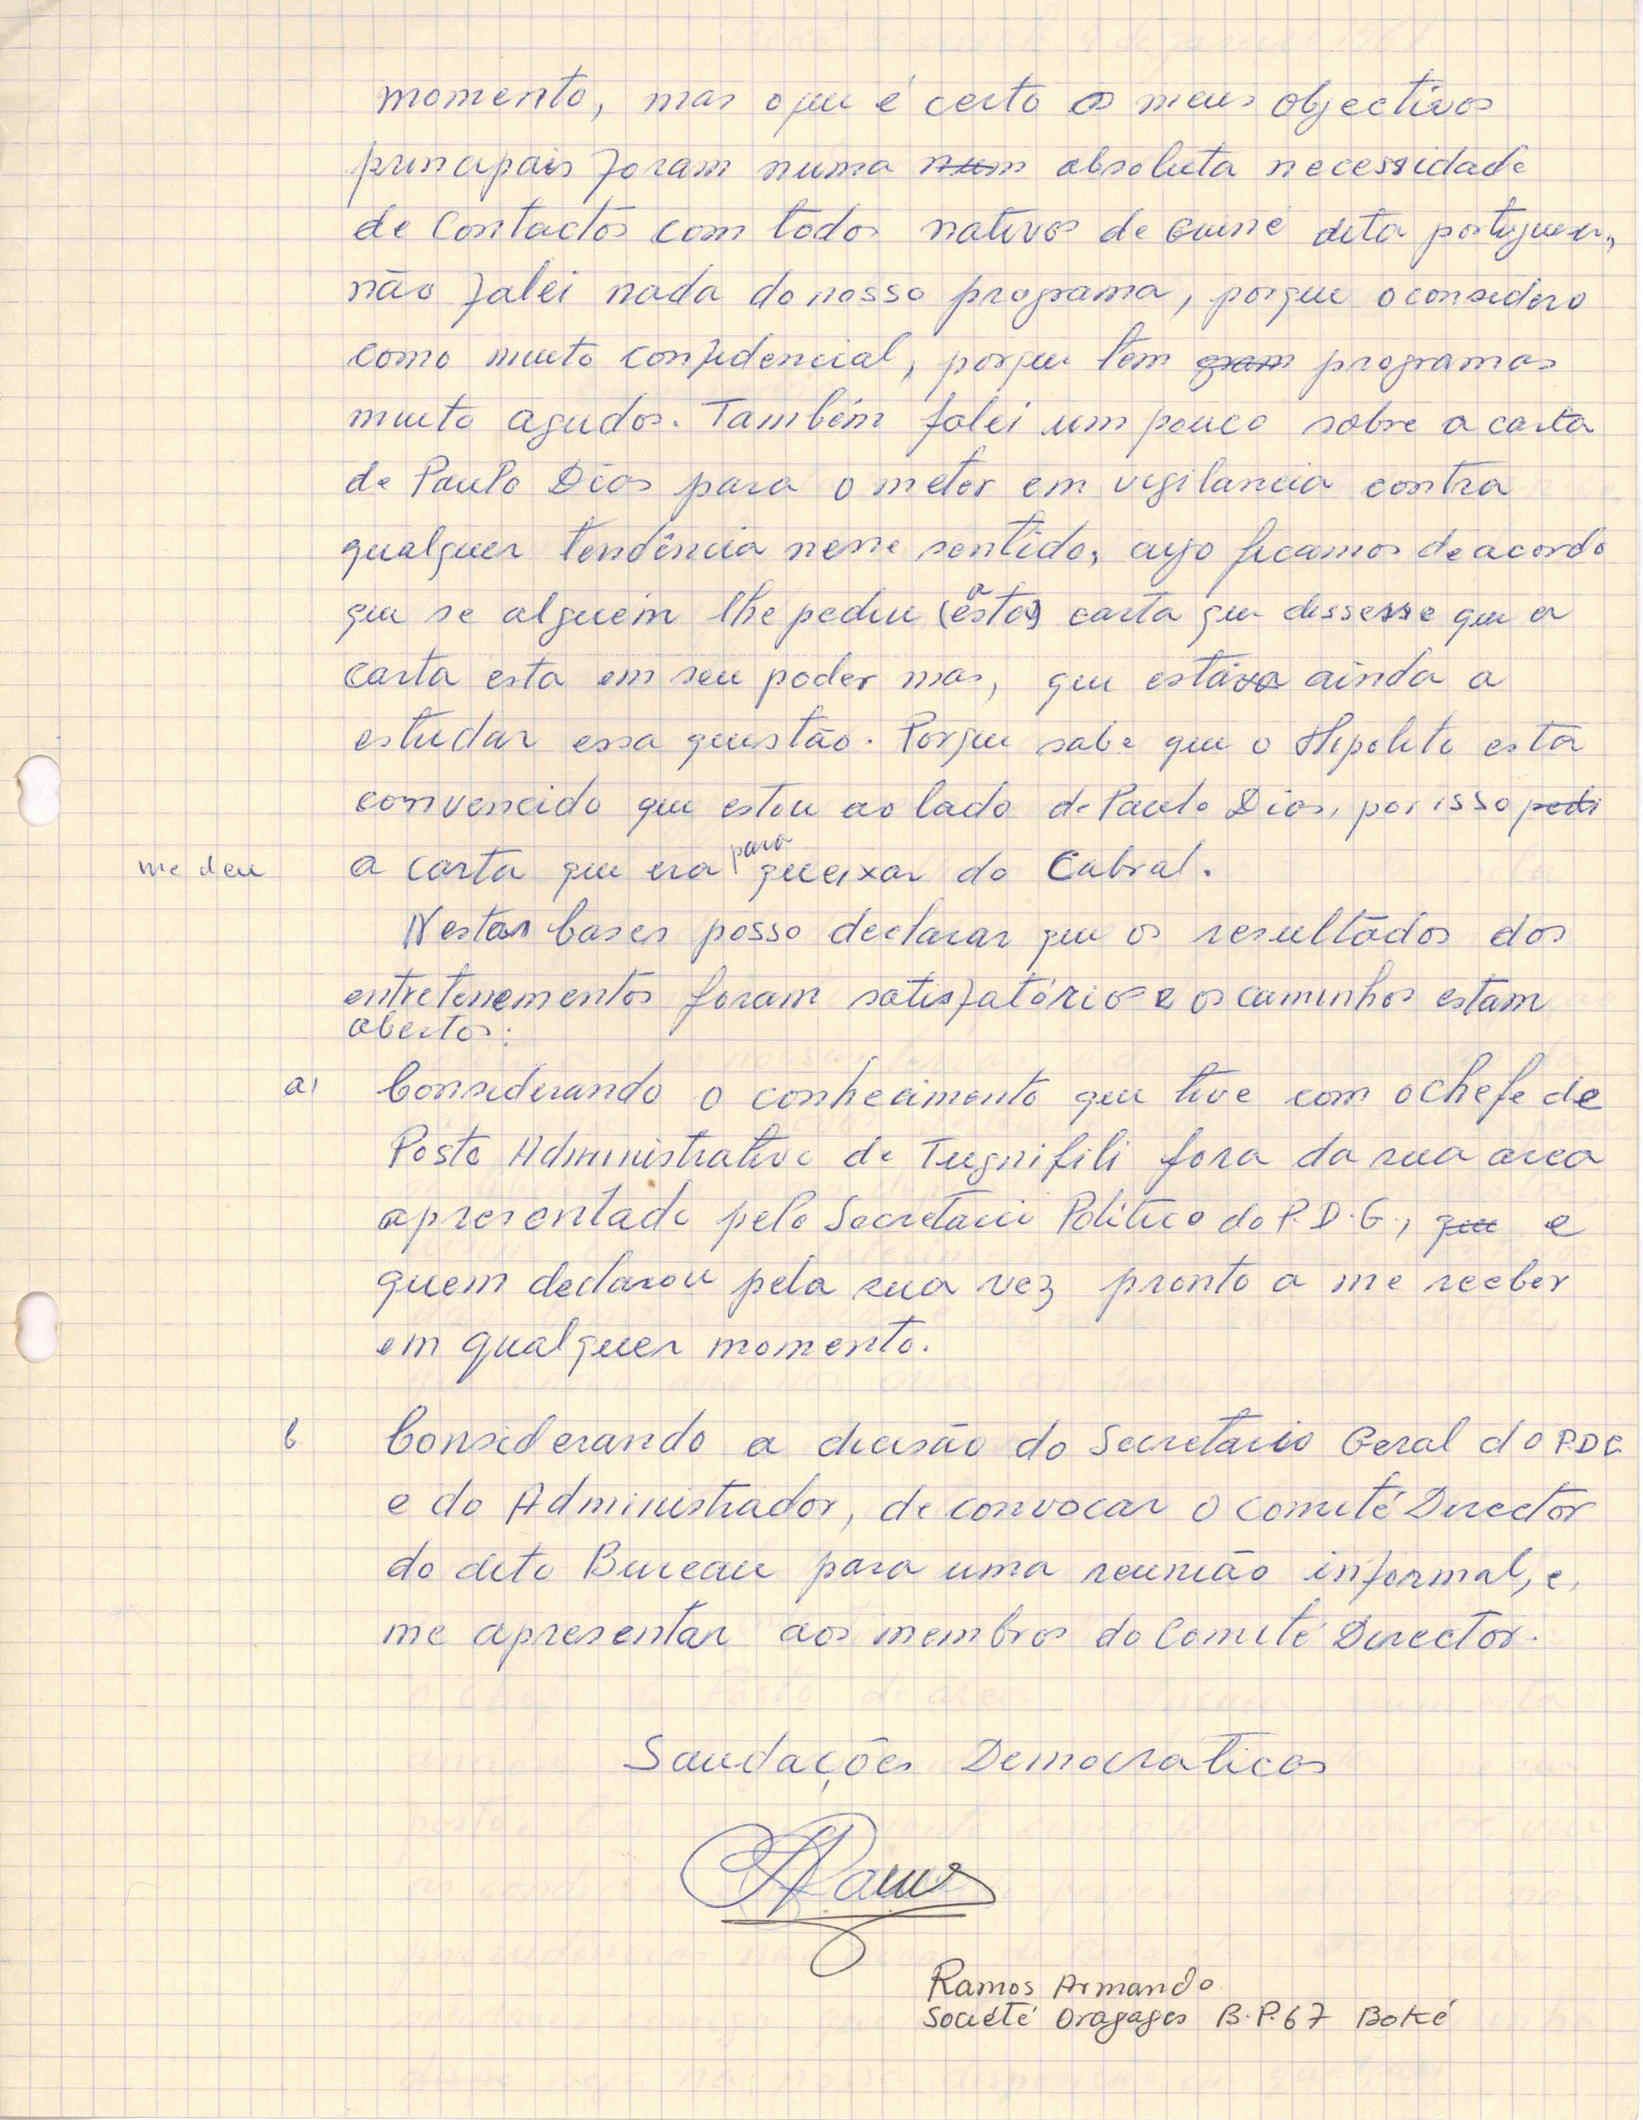 momento, mas o que é certo os meus objectivos
principais foram numa num absoluta necessidade
de Contactos com todos nativos de Guiné dita portuguesa,
não falei nada do nosso programa, porque o considero
como muito confidencial, porque tem gram programas
muito agudos. Também falei um pouco sobre a carta
de Paulo Dias para o meter em vigilancia contra
qualquer tendência nesse sentido, cujo ficamos de acordo
que se alguém lhe pediu (esta) carta que dissesse que a
carta esta em seu poder mas, que estava ainda a
estudar essa questão. Porque sabe que o Hipolito està
convencido que estou ao lado de Paulo Dias, por isso pedi
me deu a carta que era para queixar do Cabral.
Nestas bases posso declarar que os resultados dos
entretenementos foram satisfatórios e os caminhos estam
abertos:
a) Considerando o conhecimento que tive com o chefe de
Posto Administrativo de Tugnifili fora da sua area
apresentado pelo Secretario Politico do P.D.G., que e
quem declarou pela sua vez pronto a me receber
em qualquer momento.
b Considerando a decisão do Secretario Geral do P.D.G
e do Administrador, de convocar o Comité Director
do dito Bureau para uma reunião informal, e,
me apresentar aos membros do Comité Director.
Saudações Democraticas
ARamos
Ramos Armando
Société Dragages B.P.67 Boké